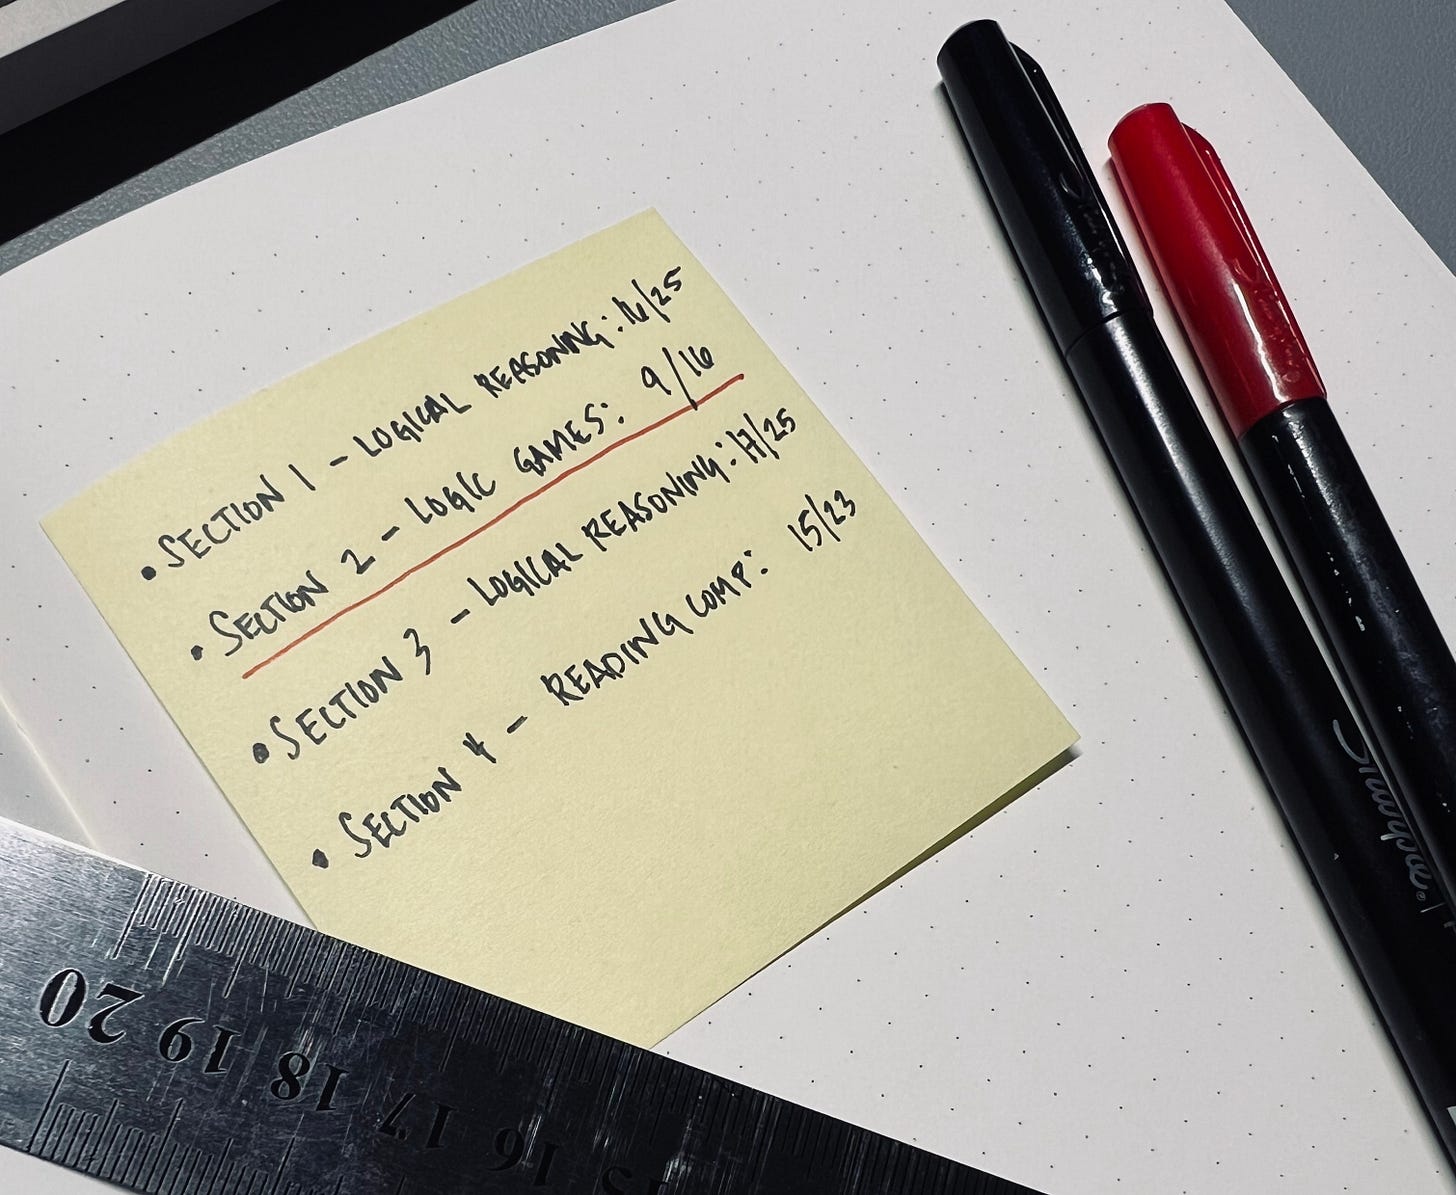 • SECTION 1 - LOGICAL REASONING: 16/25
• SECTION 2 - LOGIC GAMES: 9/16
• SECTION 3 - LOGICAL REASONING: 17/25
• SECTION 4 - READING COMP: 15/23
Sharpie®
20 19 18 17 16 15